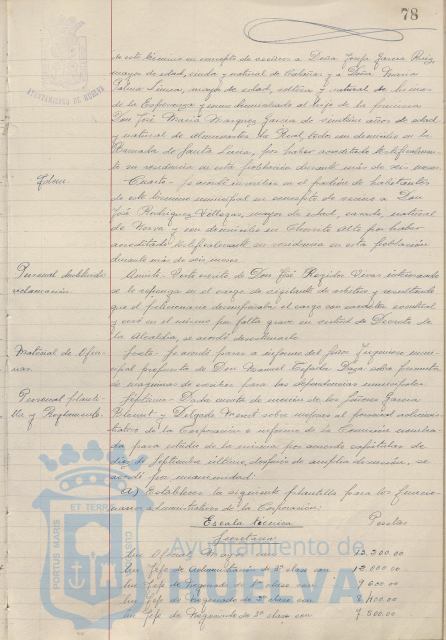 78
AYUNTAMIENTO DE HUELVA
de este término en concepto de vecinos a Doña Josefa García
mayor de edad, viuda y natural de Calañas y a Doña María
Palma Linares, mayor de edad, soltera y natural de
de la Esperanza y como domiciliado al hijo de la primera
Don José María Marquez García de veintiún años de edad
y natural de Almonaster la Real, todos con domicilio en la
Barriada de Santa Lucía, por haber acreditado
su residencia en esta población durante más de seis meses.
Idem
Cuarto.- Se acordó inscribir en el padrón de habitantes
de este término municipal en concepto de vecino a Don
José Rodríguez Villegas, mayor de edad, casado, natural
de Nerva y con domicilio en Chorrito Alto por haber
acreditado su residencia en esta población
durante más de seis meses.
Personal
reclamación.
Quinto.- Visto escrito de Don José Regidor Vivas interesando
se le reponga en el cargo de vigilante de arbitrios y resultando
que el peticionario desempeñaba el cargo con carácter
y cesó en el mismo por falta grave en virtud de Decreto de
la Alcaldía, se acordó desestimarlo.
Material de Ofici-
nas.
Sexto.- Se acordó pase a informe del Señor Ingeniero muni-
cipal propuesta de Don Manuel Tejador Daza sobre
de máquinas de escribir para las dependencias municipales.
Personal planti-
lla y Reglamento.
Septimo.- Dada cuenta de moción de los Señores García
y Delgado sobre mejoras al personal adminis-
trativo de la Corporación e informe de la Comisión nombra-
da para estudio de la misma por acuerdo capitular de
de Septiembre último, después de amplia discusión, se
acordó por unanimidad:
A) Establecer la siguiente plantilla para los funcio-
narios administrativos de la Corporación:
Escala técnica Pesetas
Secretaría
Un Oficial Mayor 13.200.00
Un Jefe de Administración de 3ª clase con 12.000.00
Un Jefe de Negociado de 1ª clase con 9.600.00
Un Jefe de Negociado de 2ª clase con 8.400.00
Un Jefe de Negociado de 3ª clase con 7.500.00
PORTUS MARIS ET TERRAE CUSTODIO
Ayuntamiento de
HUELVA